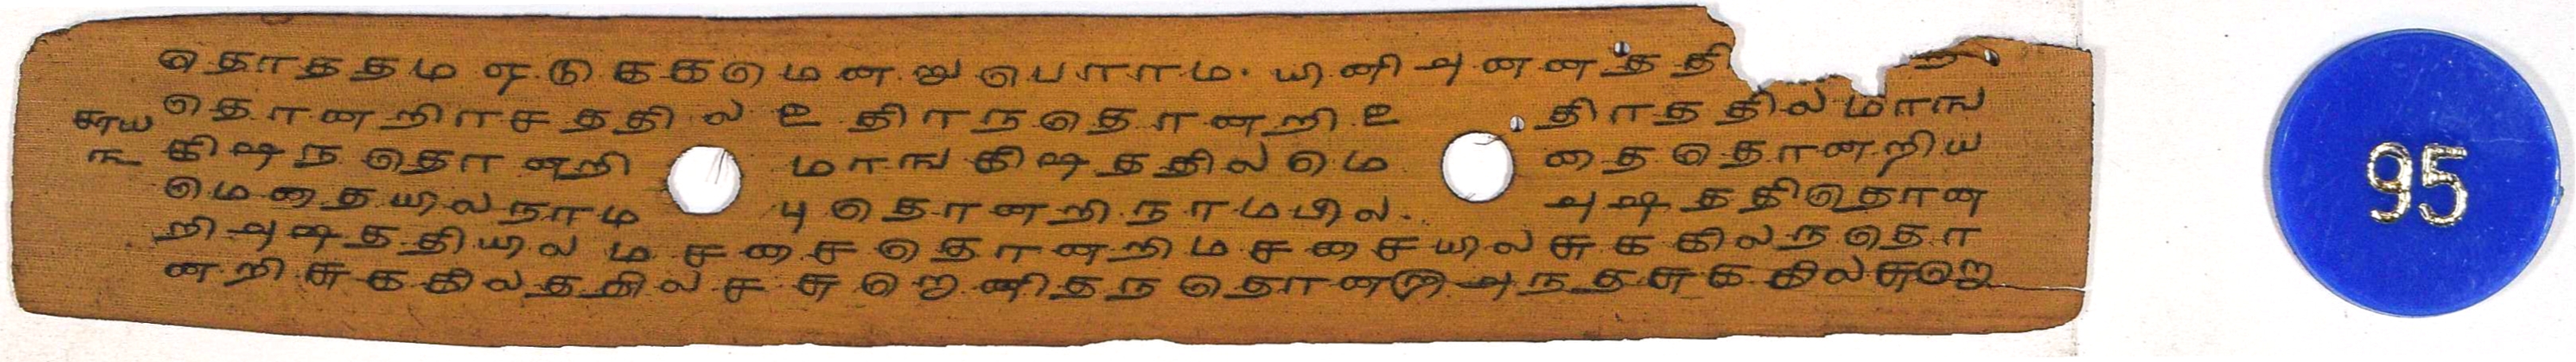 தொததம எடுககமெனறுபொராம. யினி அனனததி
தொனறிரசததில உதிரநதொனறி உதிரததிலமாங
கிஷநதொனறி மாஙகிஷததிலமெதைதொனறிய
மெதையிலநாடிபுதொனறி நாமபில. அஷததிதொன
றி அஷததியில மசசைதொனறி மசசையிலசுககிலநதொ
னறி சுககிலததிலசசுறெணிதநதொனறி அநதசுககிலசுறெ
95